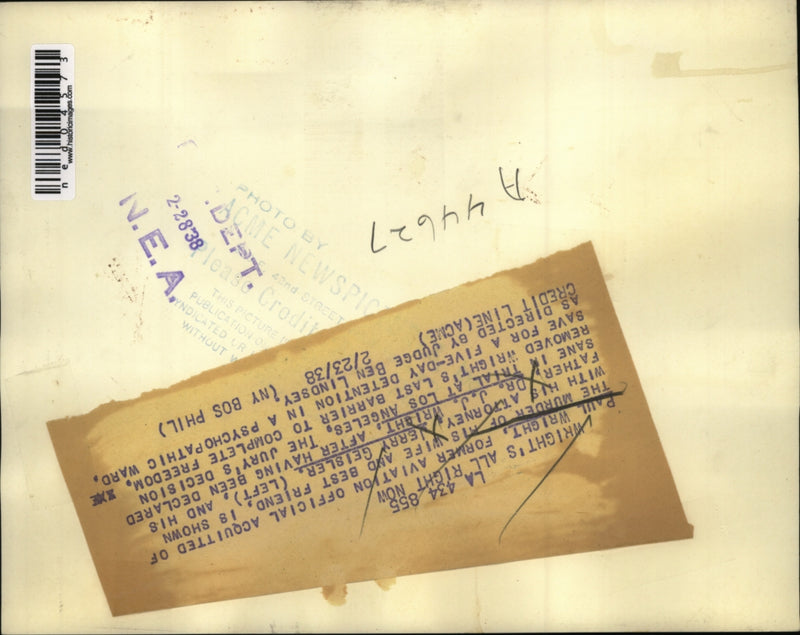 ned04573
www.historicimages.com
A 44627
DEPT.
2-28 38
N.E.A.
PHOTO BY
ACME NEWSPIC
42nd STREET
Please Credit
THIS PICTURE
PUBLICATION
SYNDICATED OR
WITHOUT
LA 434 855
WRIGHT'S ALL RIGHT NOW
PAUL WRIGHT, FORMER AVIATION OFFICIAL ACQUITTED OF
THE MURDER OF HIS WIFE AND BEST FRIEND, IS SHOWN
WITH HIS ATTORNEY JERRY GEISLER (LEFT), AND HIS
FATHER, DR. J.A. WRIGHT, AFTER HAVING BEEN DECLARED
SANE IN TRIAL AT LOS ANGELES. THE JURY'S DECISION
REMOVED WRIGHT'S LAST BARRIER TO COMPLETE FREEDOM,
SAVE FOR A FIVE-DAY DETENTION IN A PSYCHOPATHIC WARD,
AS DIRECTED BY JUDGE BEN LINDSEY.
CREDIT LINE (ACME) 2/23/38 (NY BOS PHIL)